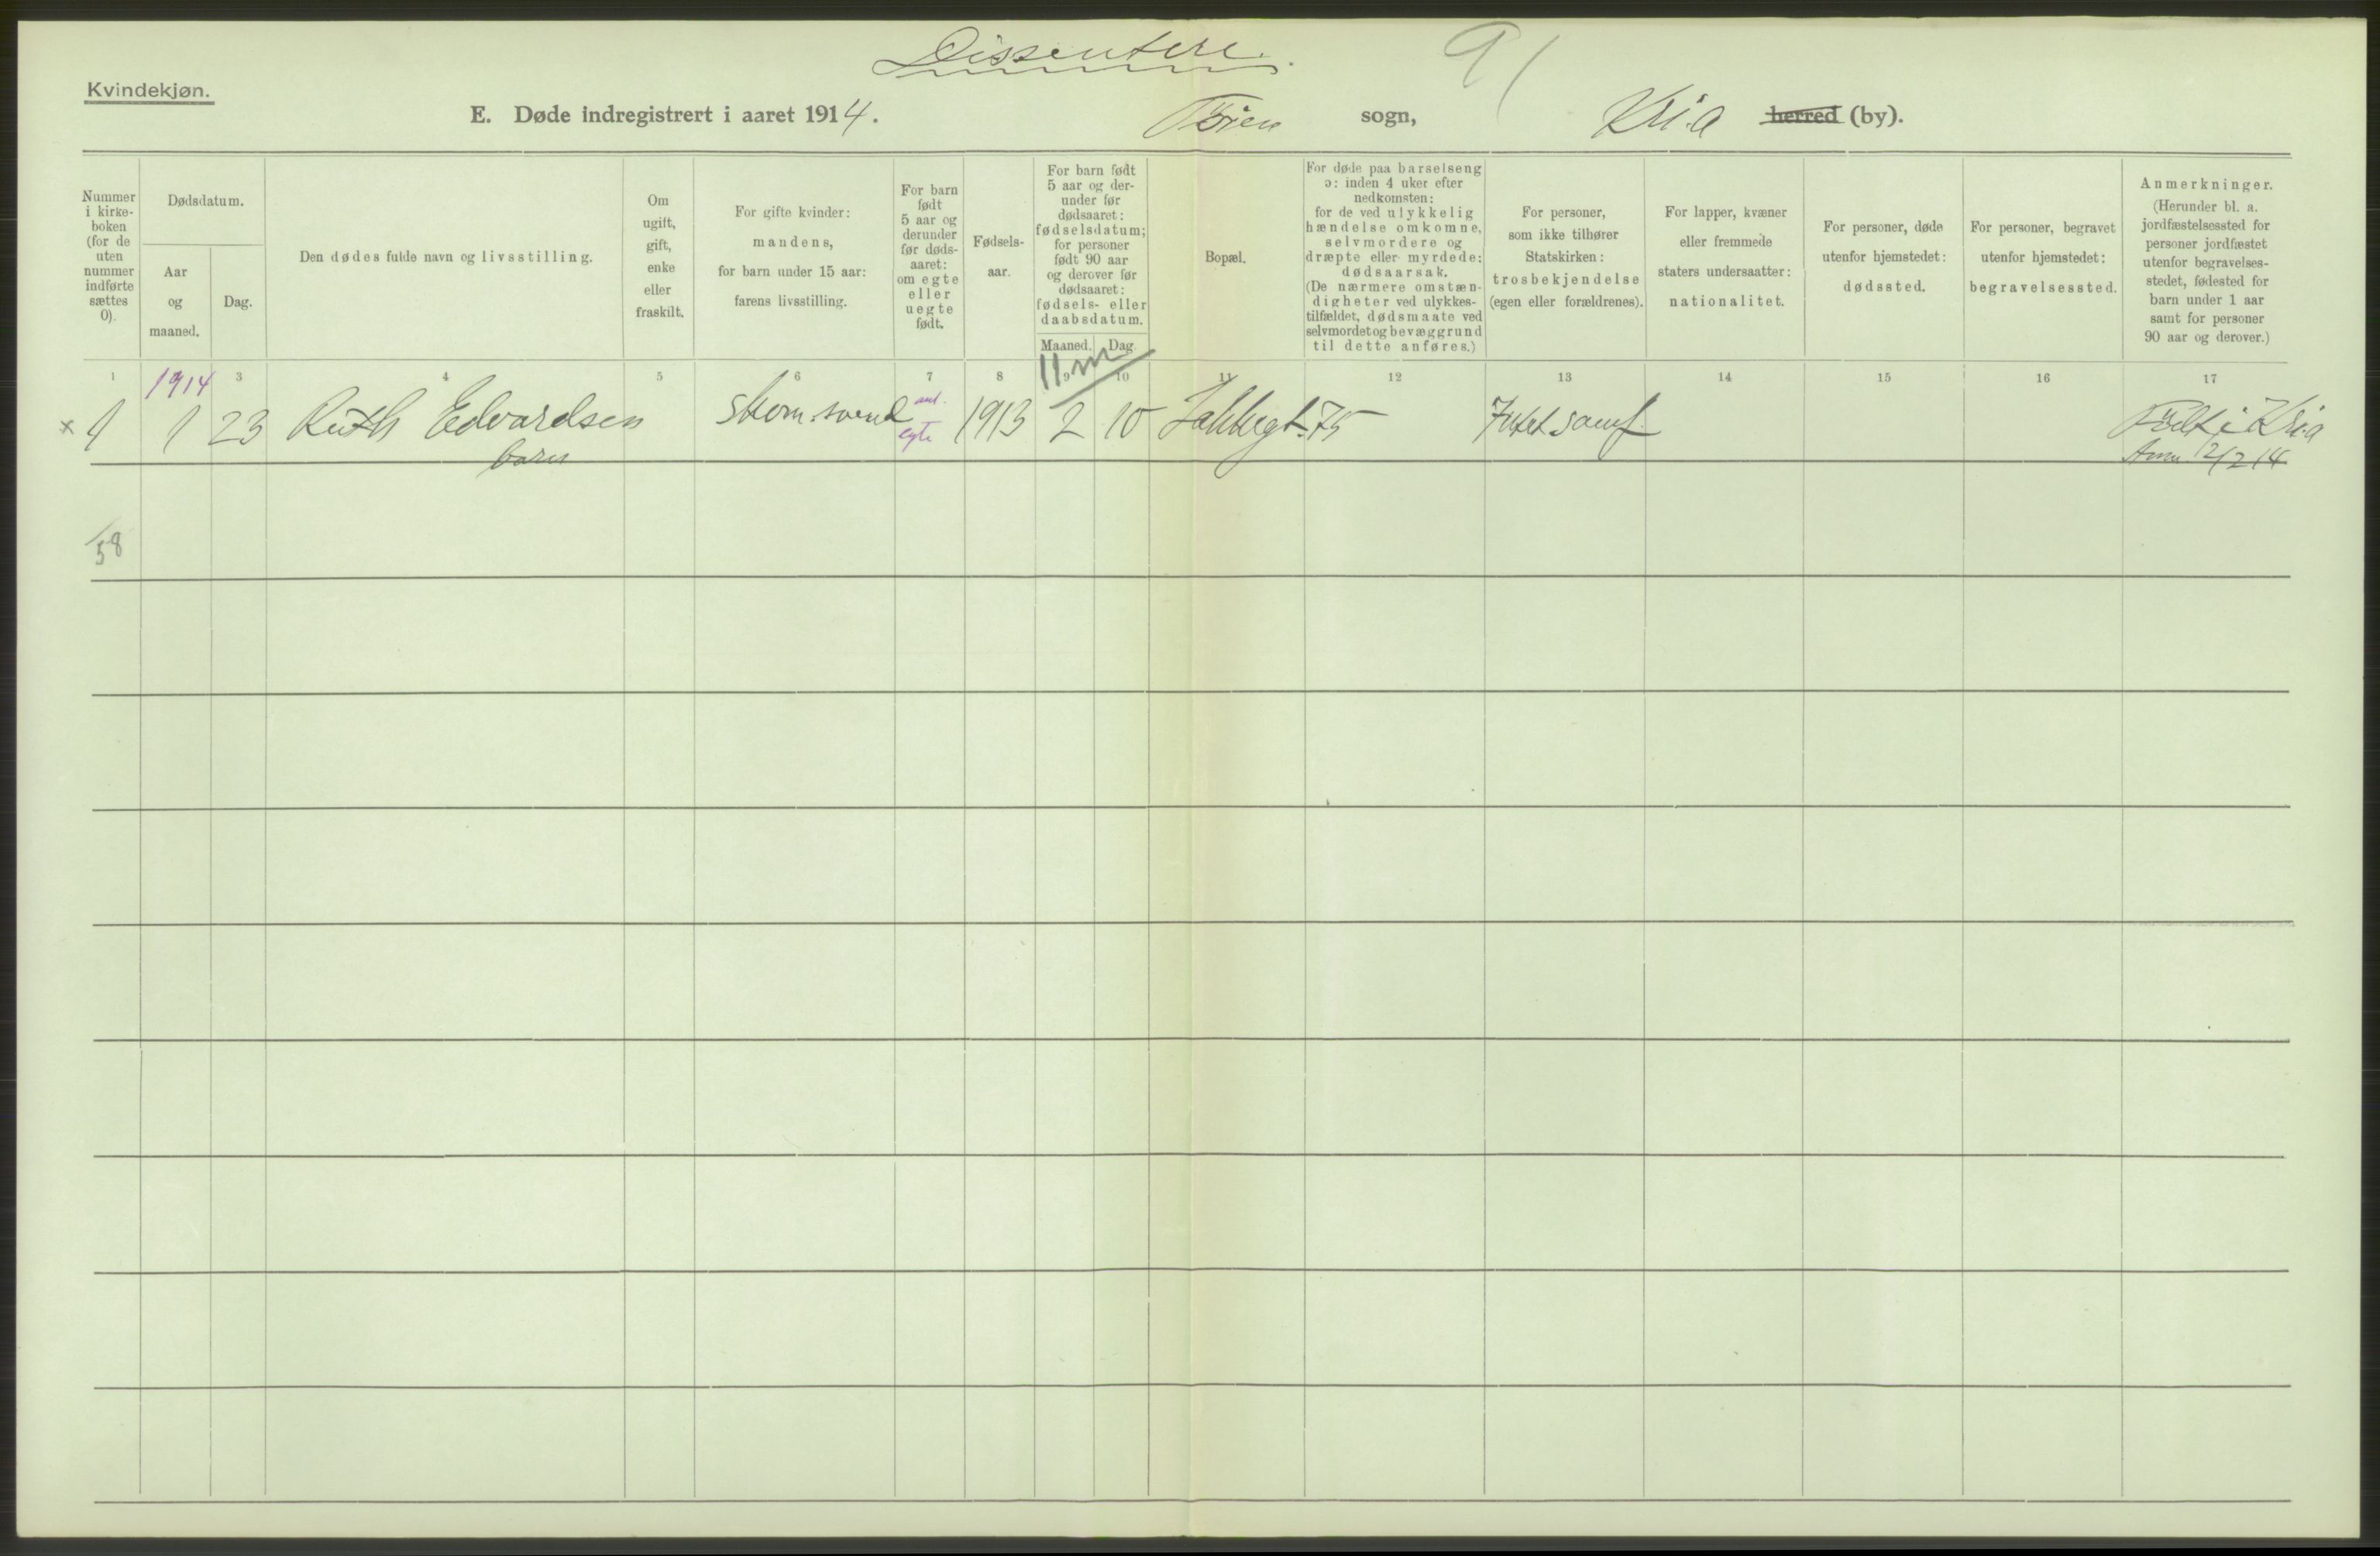 Dissentere.
9/
Kvindekjøn.
E. Døde indregistrert i aaret 1914. sogn, Kria herred (by).
Nummer i kirke- boken (for de uten nummer indførte sættes 0).
Dødsdatum.
Aar og maaned.
Dag.
Den dødes fulde navn og livsstilling.
Om ugift, gift, enke eller fraskilt.
For gifte kvinder: mandens, for barn under 15 aar: farens livsstilling.
For barn født 5 aar og derunder før døds- aaret: om egte eller uegte født.
Fødsels- aar.
For barn født 5 aar og der- under før dødsaaret: fødselsdatum; for personer født 90 aar og derover før dødsaaret: fødsels- eller daabsdatum.
Maaned. Dag.
Bopæl.
For døde paa barselseng ɔ: inden 4 uker efter nedkomsten: for de ved ulykkelig hændelse omkomne, selvmordere og dræpte eller myrdede: dødsaarsak. (De nærmere omstæn- digheter ved ulykkes- tilfældet, dødsmaate ved selvmordet og bevæggrund til dette anføres.)
For personer, som ikke tilhører Statskirken: trosbekjendelse (egen eller forældrenes).
For lapper, kvæner eller fremmede staters undersaatter: nationalitet.
For personer, døde utenfor hjemstedet: dødssted.
For personer, begravet utenfor hjemstedet: begravelsessted.
Anmerkninger. (Herunder bl. a. jordfæstelsessted for personer jordfæstet utenfor begravelses- stedet, fødested for barn under 1 aar samt for personer 90 aar og derover.)
11 m
1 1914 3 4 5 6 7 8 9 10 11 12 13 14 15 16 17
x 1 1 23 Ruth Edvardsen skom.svend egte 1913 2 10 75 samf. Født i Kria
barn 12/2 14
58